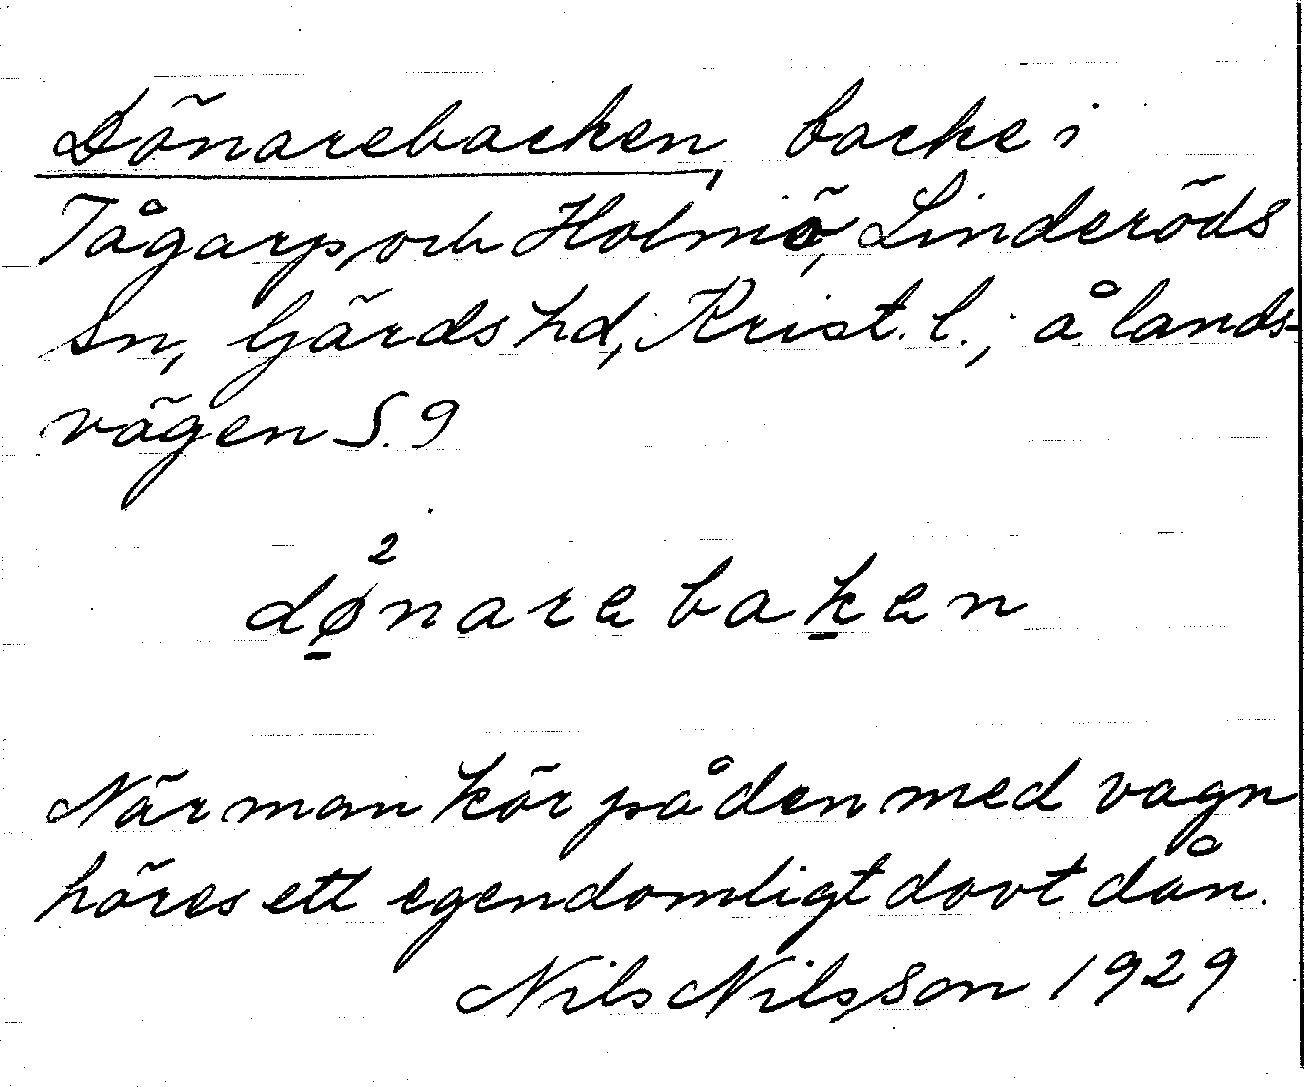 Dönarebacken, backe i
Tågarp och Holmö, Linderöds
sn, Gärds hd, Krist. l.; å lands-
vägen S. 9
2
dønarebaken
När man kör på den med vagn
höres ett egendomligt dovt dån.
Nils Nilsson 1929